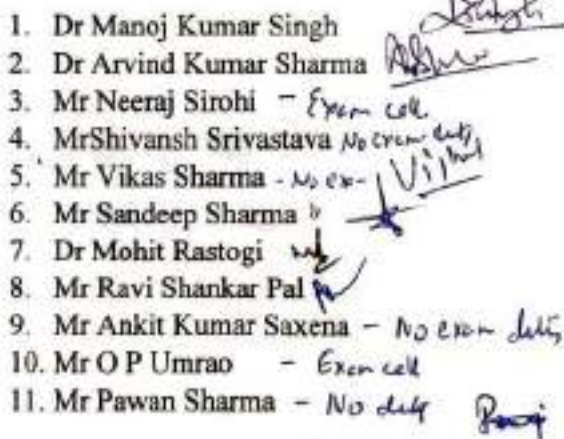 1. Dr Manoj Kumar Singh
2. Dr Arvind Kumar Sharma
3. Mr Neeraj Sirohi - Exam cell
4. MrShivansh Srivastava No exam duty
5. Mr Vikas Sharma - No ex-
6. Mr Sandeep Sharma
7. Dr Mohit Rastogi
8. Mr Ravi Shankar Pal
9. Mr Ankit Kumar Saxena - No exam duty
10. Mr O P Umrao - Exam cell
11. Mr Pawan Sharma - No duty